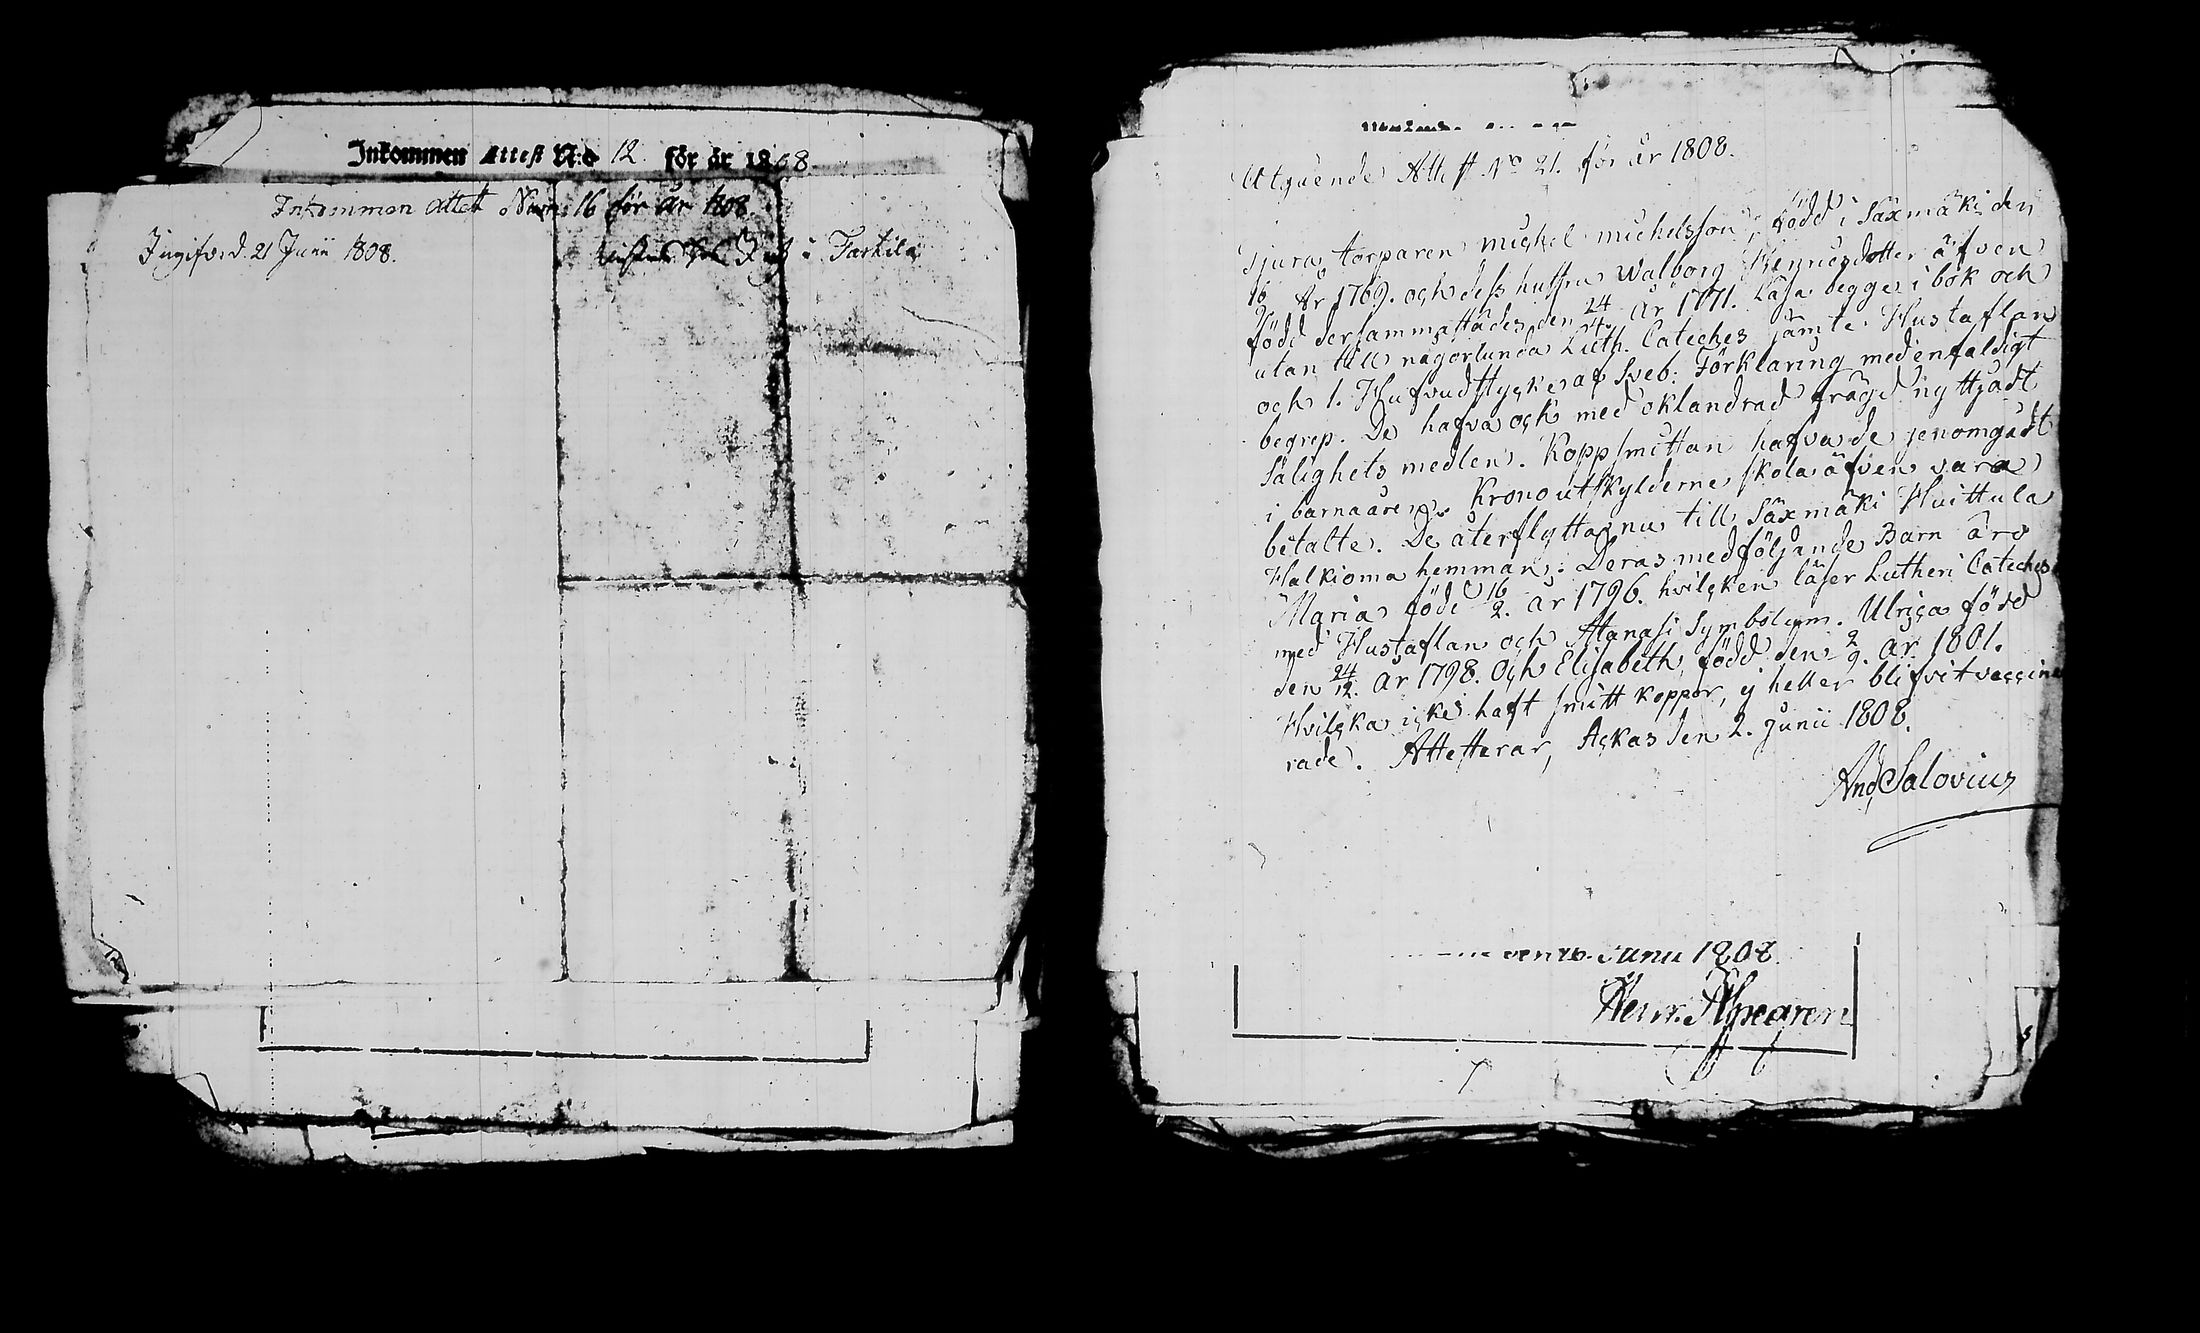 Inkommen Attest N:o 12. för år 1808.
Inkommen attest Num: 16 för år 1808.
Ingifved. 21 Junii 1808.
i Tarkila
Utgående Attest No 21. för år 1808.
torparen Michel Michelsson, född i Säxmäki den
16/9 År 1769. och dess hustru Walborg Henricsdotter äfven
född dersammastädes, den 24/4 År 1771. Läsa begge i bok och
utan till någorlunda Luth. Cateches jämte Hustaflan
och 1. Hufvudstycke af Sveb: Förklaring med enfaldigt
begrep. De hafva och med oklandrad frägd nyttjadt
Salighets medlen. Koppsmittan hafva de jenomgådt
i barnaåren. Kronoutskylderne skola äfven vara
betalte. De återflytta nu till Säxmäki Huittula
Walkioma hemman: Deras medföljande Barn äro
Maria född 16/2. år 1796. hvilcken läser Lutheri Cateches
med Hustaflan och Atanasi Symbolum. Ulrica född
den 24/12. år 1798. Och Elisabeth född den 2/9. år 1801.
Hvilcka icke haft smitt koppor, ej heller blifvit vaccine
rade. Attesterar, Ackas den 2. Junii 1808.
And Salovius
Junii 1808.
Henr.